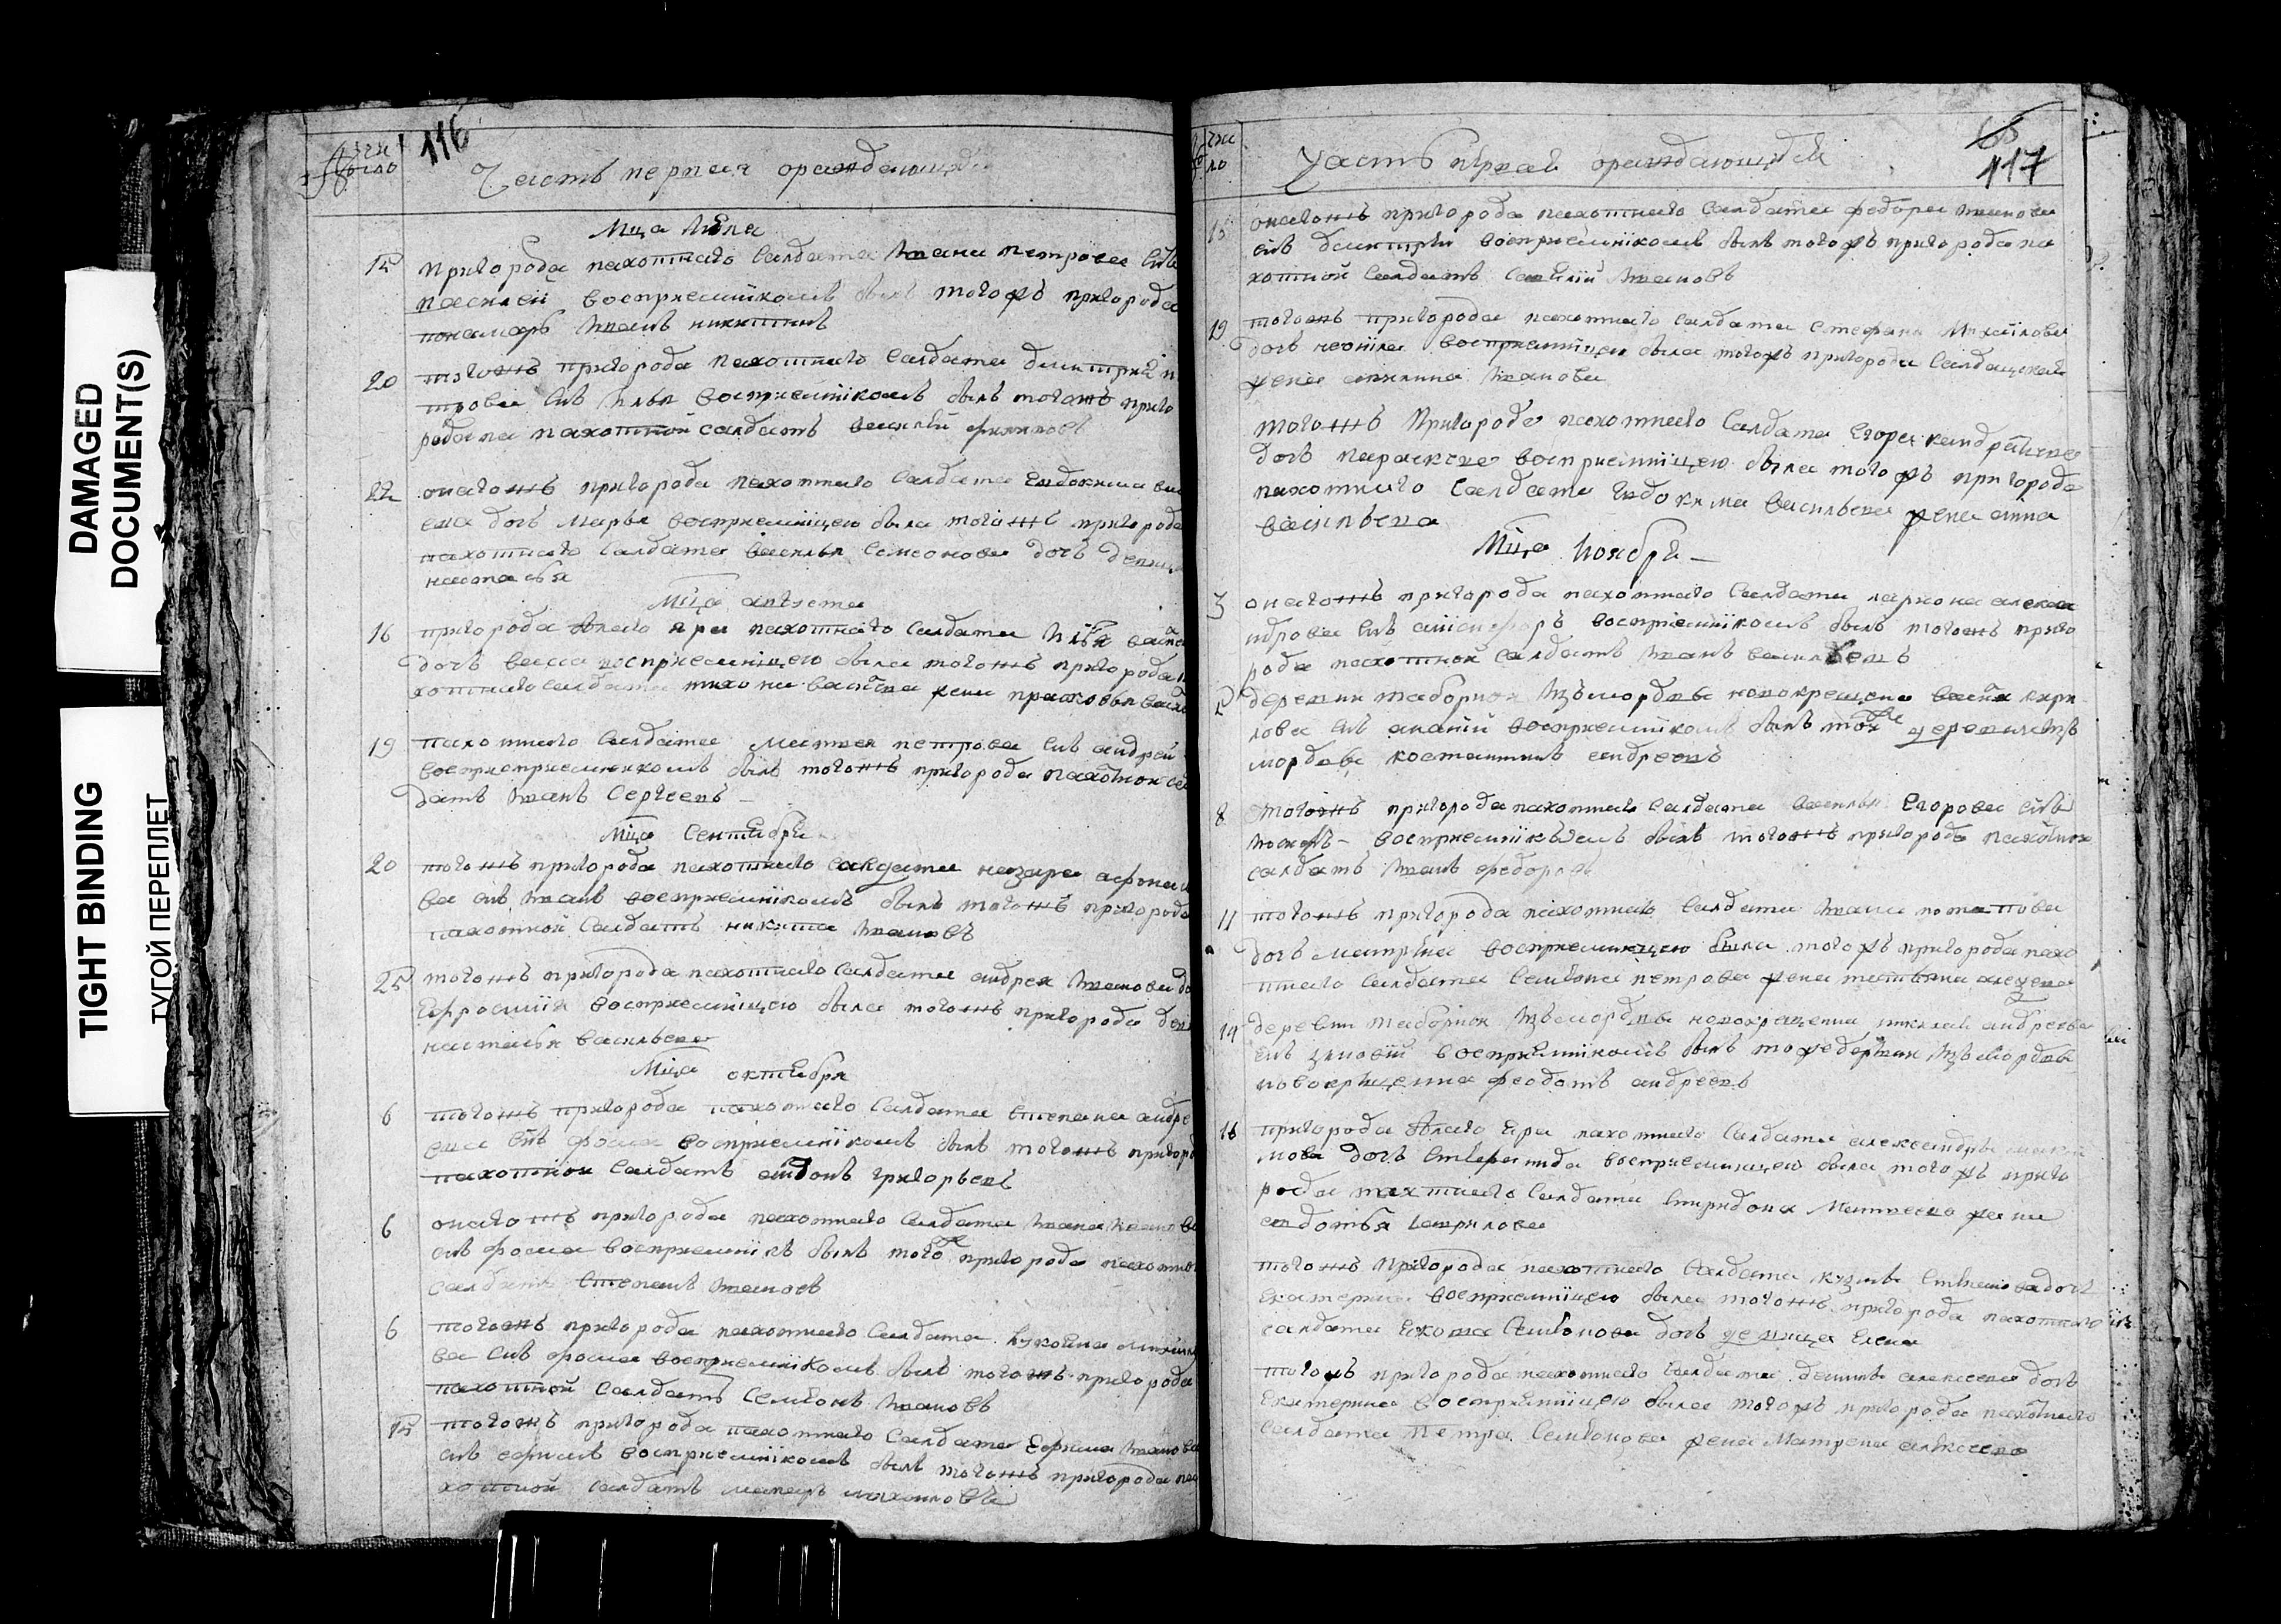 DAMAGED
DOCUMENT(S)
TIGHT BINDING
ТУГОЙ ПЕРЕПЛЕТ
число
116
Часть первая ораждающи
Мца июля
15 пригорода пахотнаго салдата ивана петрова снъ
василей восприемникомъ былъ тогожъ пригорода
понамарь иванъ никитинъ
20 тогожъ пригорода пахотнаго салдата дмитрия
трова снъ илья восприемникомъ былъ тогожъ приго
рода па пахотной салдатъ василей филиповъ
22 оногожъ пригорода пахотнаго салдата евдокима ва
ева дочь марья восприемницею была тогожъ пригорода
пахотнаго салдата василья симонова дочь девица
настасья
Мца августа
16 пригорода яра пахотнаго салдата илья
дочь васса восприемницею была тогожъ пригорода
хотнаго салдата тихона жена прасковья
19 пахотнаго салдата матвея петрова снъ андрей
восприеприемникомъ былъ тогожъ пригорода пахотной сал
датъ иванъ сергеевъ
Мца сентября
20 тогожъ пригорода пахотнаго салдата назара афонас
ва снъ иванъ восприемникомъ былъ тогожъ пригорода
пахотной салдатъ никита ивановъ
25 тогожъ пригорода пахотнаго салдата андрея иванова до
ефросиния восприемницею была тогожъ пригорода дев
наталья васильева
Мца октября
6 тогожъ пригорода пахотнаго салдата степана андре
ева снъ фома восприемникомъ былъ тогожъ пригоро
пахотной салдатъ антонъ григорьевъ
6 оногожъ пригорода пахотнаго салдата ивана иванова
снъ фома восприемникъ былъ тогоже пригорода пахотно
салдатъ степанъ ивановъ
6 тогожъ пригорода пахотнаго салдата
ва снъ фома восприемникомъ былъ тогожъ пригорода
пахотной салдатъ семионъ ивановъ
15 тогожъ пригорода пахотнаго салдата ефима иванова
снъ ефимъ восприемникомъ былъ тогожъ пригорода па
хотной салдатъ
число
Часть первая ораждающихся
117
15 оногожъ пригорода пахотнаго салдата федора иванова
снъ дмитрей восприемникомъ былъ тогожъ пригорода па
хотной салдатъ савелий ивановъ
19 тогожъ пригорода пахотнаго салдата стефана михаилова
дочь неонила восприемницею была тогожъ пригорода салдацкая
жена иванова
тогожъ пригорода пахотнаго салдата егора кандратьева
дочь параскева восприемницею была тогожъ пригорода
пахотнаго салдата евдокима васильева жена анна
васильева
Мца ноября
3 оногожъ пригорода пахотнаго салдата лариона алекса
ндрова снъ восприемникомъ былъ тогожъ приго
рода пахотной салдатъ иванъ васильевъ
5 деревни таборной измордвы новокрещена кири
лова снъ ананий восприемникомъ былъ тояже деревни изъ
мордвы костантинъ андреевъ
8 тогожъ пригорода пахотнаго салдата василья егорова снъ
иосифъ восприемникомъ былъ тогожъ пригорода пахотной
салдатъ иванъ федоровъ
11 тогожъ пригорода пахотнаго салдата ивана потапова
дочь матрена восприемницею была тогожъ пригорода пахо
тнаго салдата семиона петрова жена татьяна
14 деревни таборной измордвы новокрещена николая андреева
снъ зиновей восприемникомъ былъ тоже деревни измордвы
новокрещенна феодотъ андреевъ
16 пригорода яра пахотнаго салдата александра
мова дочь восприемницею была тогожъ приго
рода пахотнаго салдата спиридона матвеева жена
евдотья гаврилова
тогожъ пригорода пахотнаго салдата кузмы дочь
екатерина восприемницею была тогожъ пригорода пахотнаго
салдата семионова дочь девица елена
тогожъ пригорода пахотнаго салдата алексеева дочь
екатерина восприемницею была тогожъ пригорода пахотнаго
салдата петра семионова жена матрена алексеева